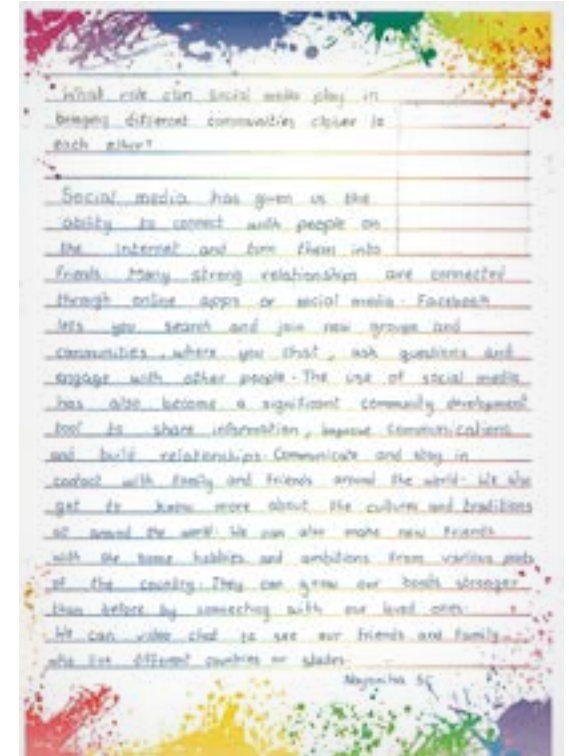 What role can social media play in
bringing different communities closer to
each other?
Social media has given us the
ability to connect with people on
the internet and turn them into
friends. Many strong relationships are connected
through online apps or social media. Facebook
lets you search and join new groups and
communities, where you chat, ask questions and
engage with other people. The use of social media
has also become a significant community development
tool to share information, improve communications
and build relationships. Communicate and stay in
contact with family and friends around the world. We also
get to know more about the cultures and traditions
all around the world. We can also make new friends
with the same hobbies and ambitions from various parts
of the country. They can grow our bonds stronger
than before by connecting with our loved ones.
We can video chat to see our friends and family
who live different countries or states.